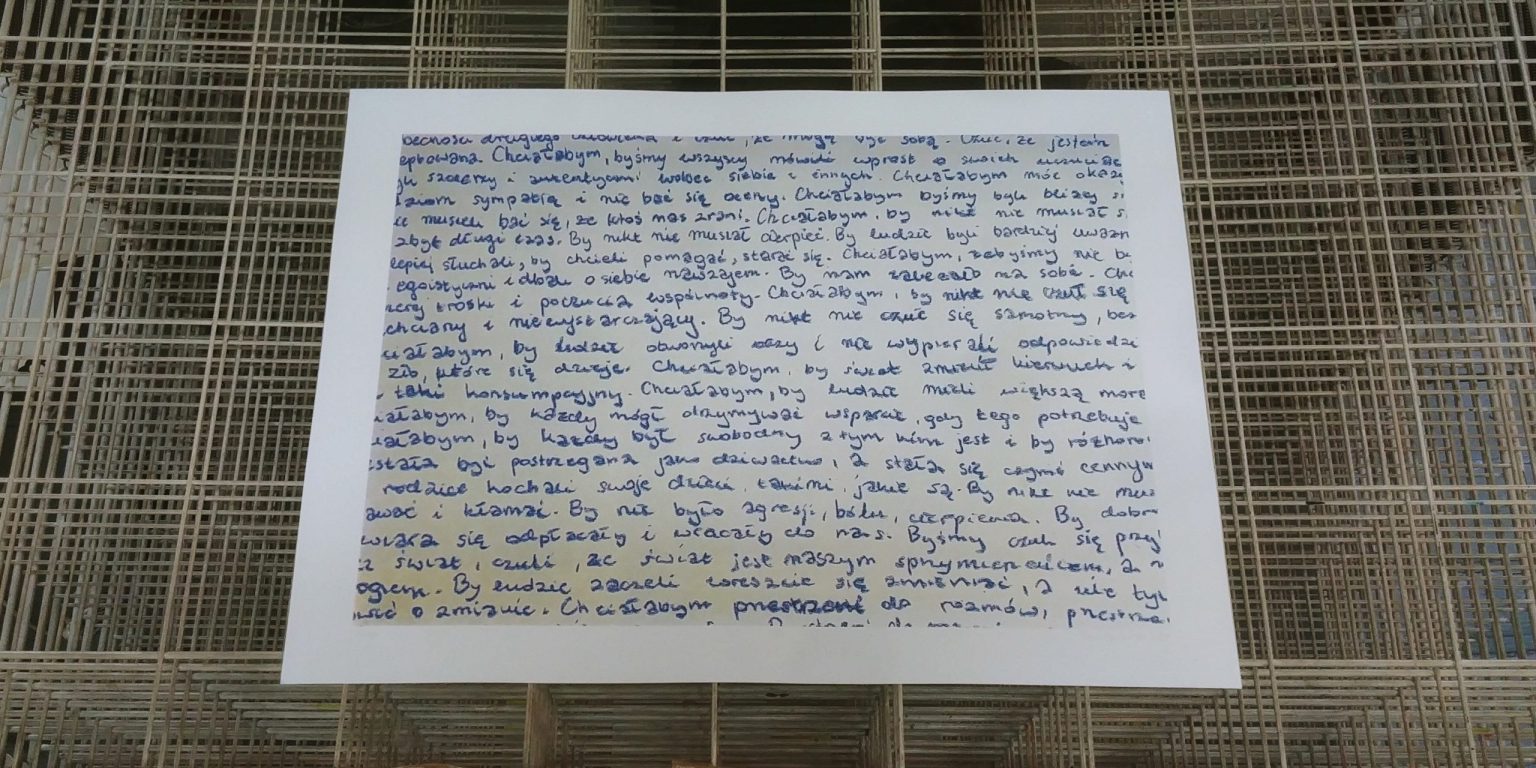 becności drugiego człowieka i czuć, że mogę być sobą. Czuć, że jestem
eptowana. Chciałabym, byśmy wszyscy mówili wprost o swoich uczuciac
yli szczerzy i autentyczni wobec siebie i innych. Chciałabym móc okaz
ziom sympatię i nie bać się oceny. Chciałabym byśmy byli bliżej si
ie musieli bać się, że ktoś nas zrani. Chciałabym, by nikt nie musiał s
zbyt długi czas. By nikt nie musiał cierpieć. By ludzie byli bardziej uważn
lepiej słuchali, by chcieli pomagać, starać się. Chciałabym, żebyśmy nie b
egoistyczni i dbali o siebie nawzajem. By nam zależało na sobie. Chc
erej troski i poczucia wspólnoty. Chciałabym, by nikt nie czuł się
chciany i niewystarczający. By nikt nie czuł się samotny, bez
ciałabym, by ludzie otworzyli oczy i nie wypierali odpowiedzi
zło, które się dzieje. Chciałabym, by świat zmienił kierunek i
taki konsumpcyjny. Chciałabym, by ludzie mieli większą more
iałabym, by każdy mógł otrzymywać wsparcie, gdy tego potrzebuje
iałabym, by każdy był swobodny z tym kim jest i by różnoro
stała być postrzegana jako dziwactwo, a stała się czymś cennym
rodzice kochali swoje dzieci, takimi, jakie są. By nikt nie mus
awać i kłamać. By nie było agresji, bólu, cierpienia. By dobr
wiara się odpłacały i wracały do nas. Byśmy czuli się przy
z świat, czuli, że świat jest naszym sprzymierzeńcem, a n
ogiem. By ludzie zaczęli wreszcie się zmieniać, a nie tyl
wić o zmianie. Chciałabym przestrzeni do rozmów, przestrze